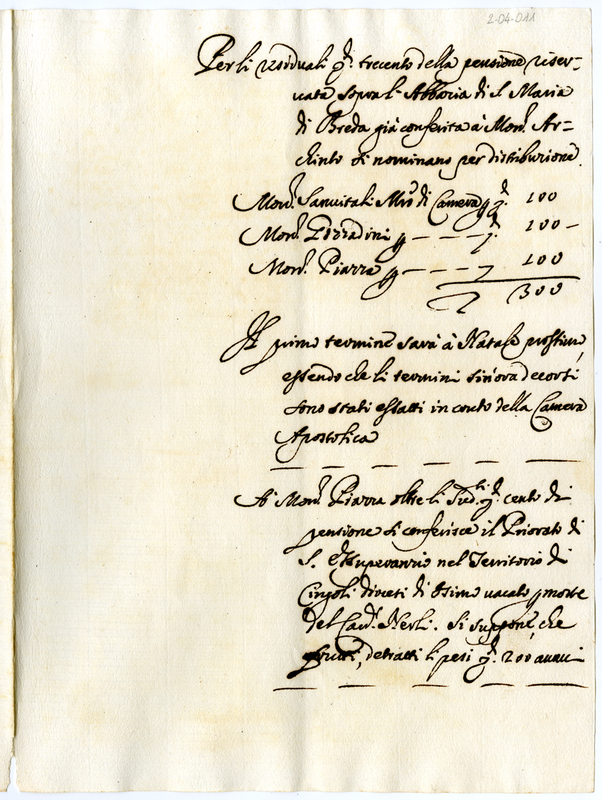 2-04-011
Per li residuali ∇.di trecento della pensione riser-
vata sopra l'Abbazia di S. Maria
di Breda già conferita à Mons.r Ar=
chinto si nominano per distribuzione
Mons.r Sanvitali Mro di Camera p ∇.di 100
Mons.r Pozzadini p - - - - ∇. 100 -
Mons.r Piazza p - - - - ∇. 100
∇. 300
Il primo termine sarà à Natale prossimo,
essendo che li termini sin'ora decorsi
sono stati esatti in conto della Camera
Apostolica
A Mons.r Piazza oltre li sud.ti ∇.di cento di
pensione si conferisce il Priorato di
S. Esuperanzio nel Territorio di
Cingoli diocesi di Osimo vacato p morte
del Card. Nerli. Si suppone, che
frutti, detratti li pesi ∇.di 200 annui